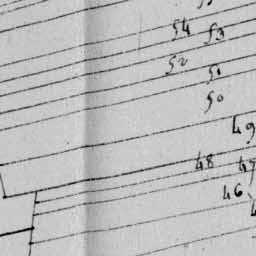 54 53
52
51
50
49
48 47
46